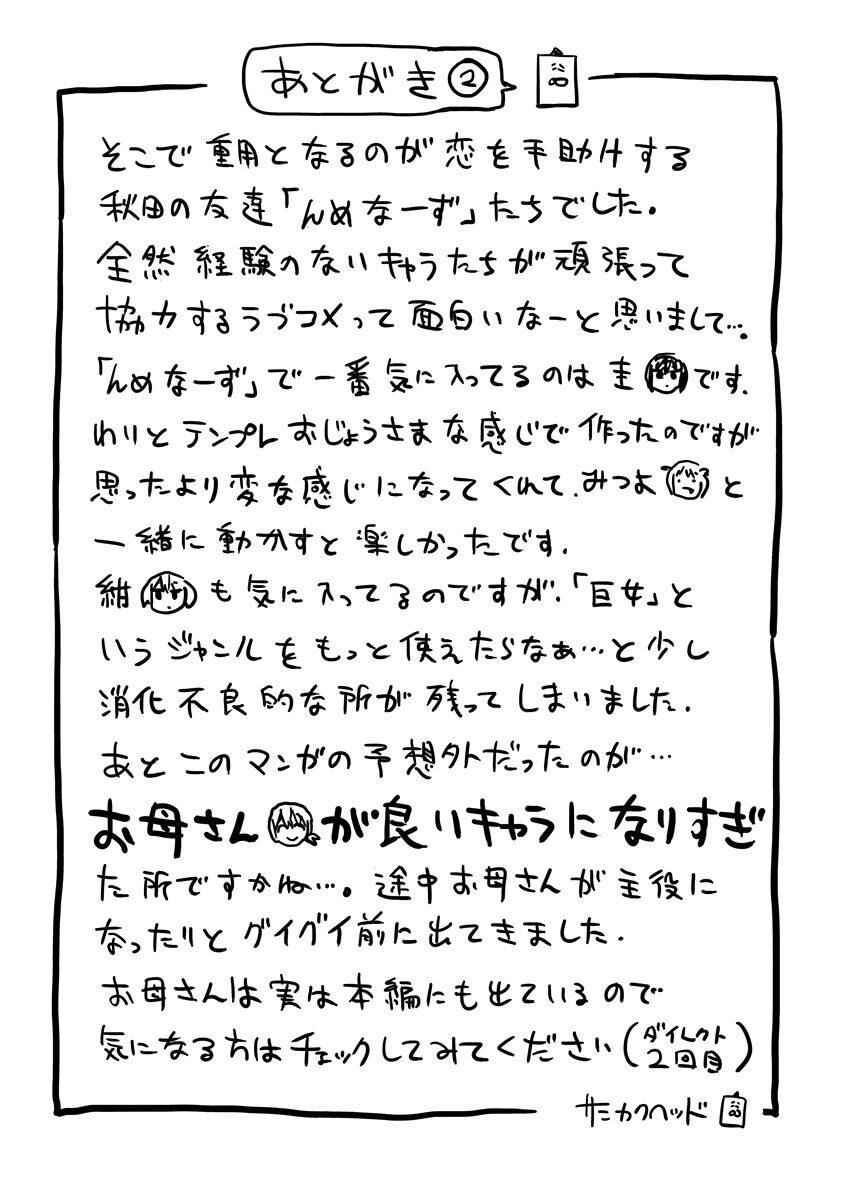 あとがき②
そこで重用となるのが恋を手助けする
秋田の友達「んめなーず」たちでした。
全然経験のないキャラたちが頑張って
協力するラブコメって面白いなーと思いまして…。
「んめなーず」で一番気に入ってるのは圭です。
わりとテンプレおじょうさまな感じで作ったのですが
思ったより変な感じになってくれて、みつよと
一緒に動かすと楽しかったです。
紺も気に入ってるのですが、「巨女」と
いうジャンルをもっと使えたらなぁ…と少し
消化不良的な所が残ってしまいました。
あとこのマンガの予想外だったのが…
お母さんが良いキャラになりすぎ
た所ですかね…。途中お母さんが主役に
なったりとグイグイ前に出てきました。
お母さんは実は本編にも出ているので
気になる方はチェックしてみてください(ダイレクト2回目)
サミカクヘッド